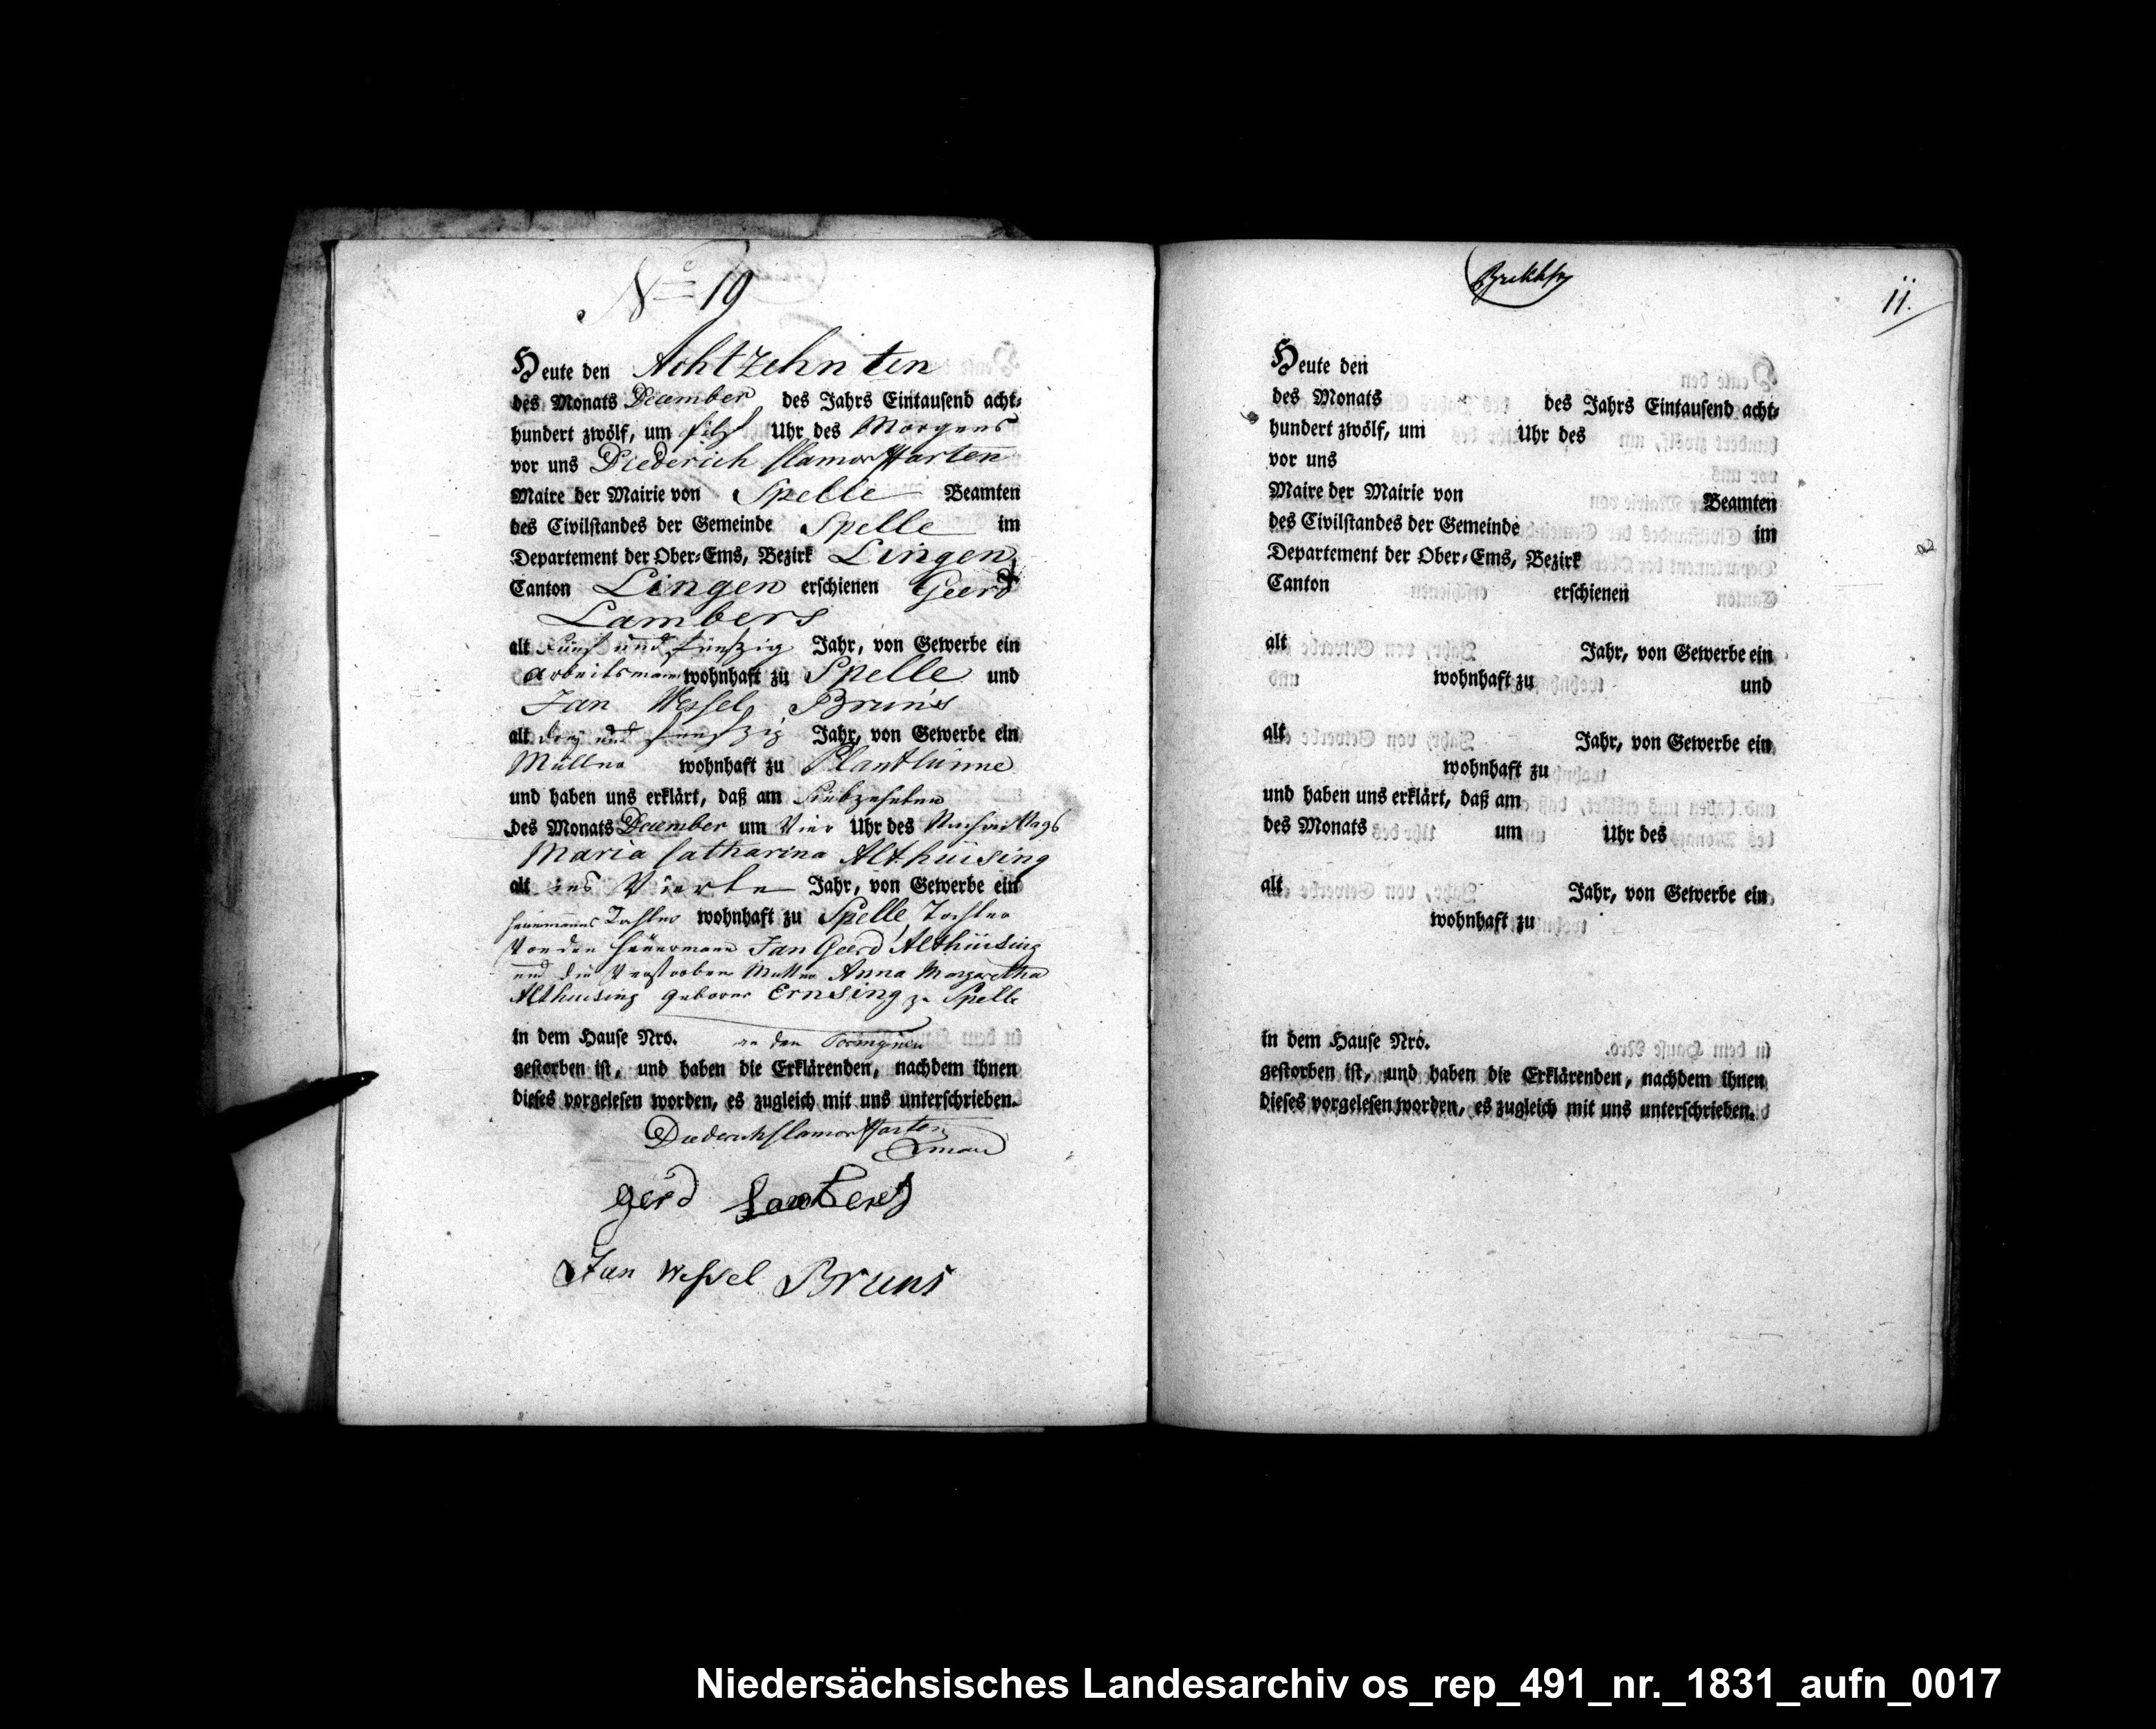 No 19
Heute den Achtzehnten
des Monats December des Jahrs Eintausend acht-
hundert zwölf, um Uhr des Morgens
vor uns Diederich Clamor Harten
Maire der Mairie von Spelle Beamten
des Civilstandes der Gemeinde Spelle im
Departement der Ober-Ems, Bezirk Lingen,
Canton Lingen erschienen Geerd
Lambers
alt Fünf und fünfzig Jahr, von Gewerbe ein
Arbeitsmann wohnhaft zu Spelle und
Jan Wessel Bruns
alt drey und fünfzig Jahr, von Gewerbe ein
Müller wohnhaft zu Plantlünne
und haben uns erklärt, daß am Siebzehnten
des Monats December um Vier Uhr des Nachmittags
Maria Catharina Althuising
alt ins Vierte Jahr, von Gewerbe ein
Heuermanns Tochter wohnhaft zu Spelle, Tochter
Von den Heuermann Jan Geerd Althuising
und die Verstorbene Mutter Anna Margaretha
Althuising geborne Ernsing zu Spelle
in dem Hause Nro. an den
gestorben ist, und haben die Erklärenden, nachdem ihnen
dieses vorgelesen worden, es zugleich mit uns unterschrieben.
Diederich Clamor Harten
Gerd Lambers
Jan Wessel Bruns
11.
Heute den
des Monats des Jahrs Eintausend acht-
hundert zwölf, um Uhr des
vor uns
Maire der Mairie von Beamten
des Civilstandes der Gemeinde im
Departement der Ober-Ems, Bezirk
Canton erschienen
alt Jahr, von Gewerbe ein
wohnhaft zu und
alt Jahr, von Gewerbe ein
wohnhaft zu
und haben uns erklärt, daß am
des Monats um Uhr des
alt Jahr, von Gewerbe ein
wohnhaft zu
in dem Hause Nro.
gestorben ist, und haben die Erklärenden, nachdem ihnen
dieses vorgelesen worden, es zugleich mit uns unterschrieben.
Niedersächsisches Landesarchiv os_rep_491_nr._1831_aufn_0017